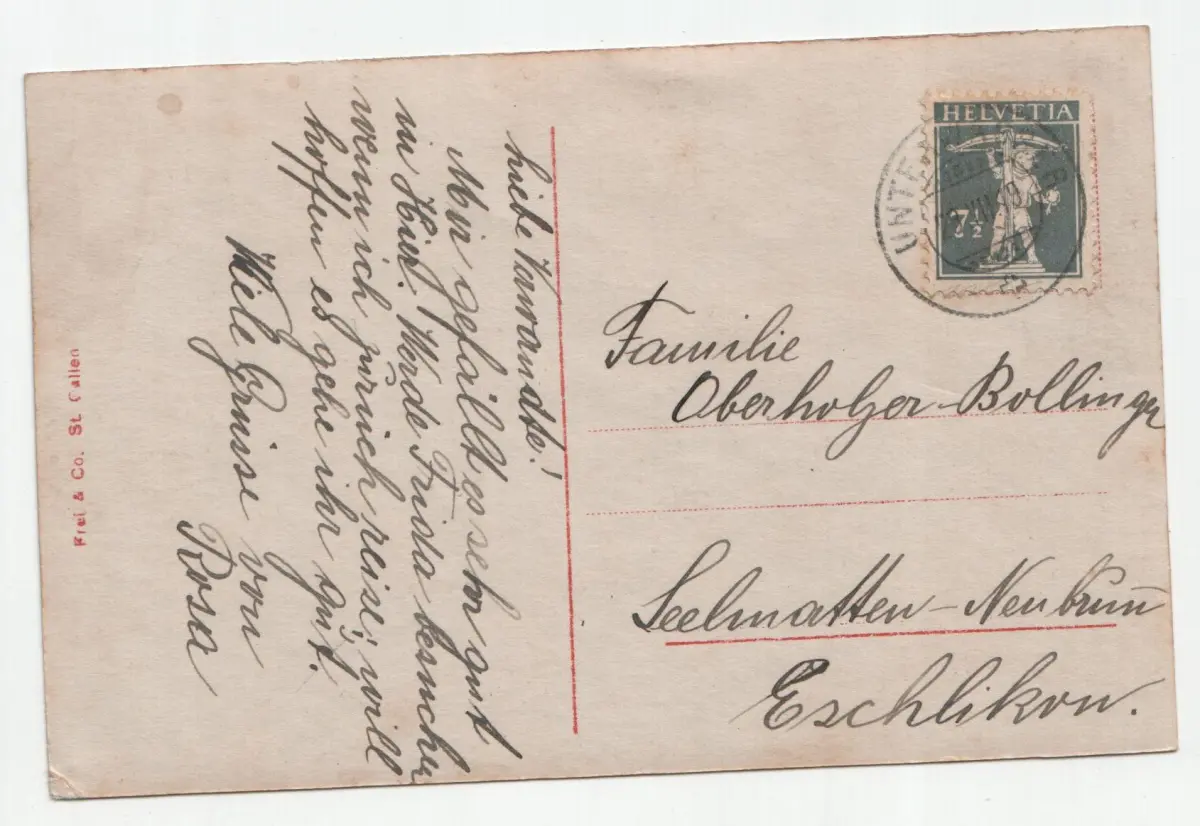 Liebe Verwandte!
Mir gefällt es sehr gut
in Hier. Werde Frida besuchen
wenn ich zurück reise, will
hoffen es gehe ihr gut.
Viele Grüsse von
Rosa
Frei & Co. St. Gallen
HELVETIA
7½
UNTE
Familie
Oberholzer-Bollinger
Seelmatten-Neubrunn
Eschlikon.